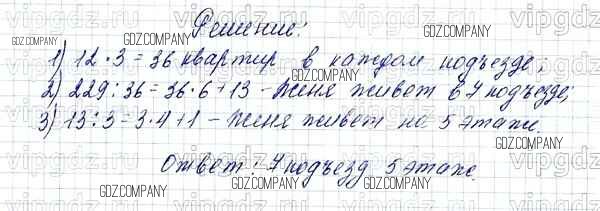 Решение:
1) 12 · 3 = 36 квартир в каждом подъезде;
2) 229 : 36 = 36 · 6 + 13 - Женя живет в 7 подъезде;
3) 13 : 3 = 3 · 4 + 1 - Женя живет на 5 этаже.
Ответ: 7 подъезд 5 этаж.
GDZ.COMPANY
vipgdz